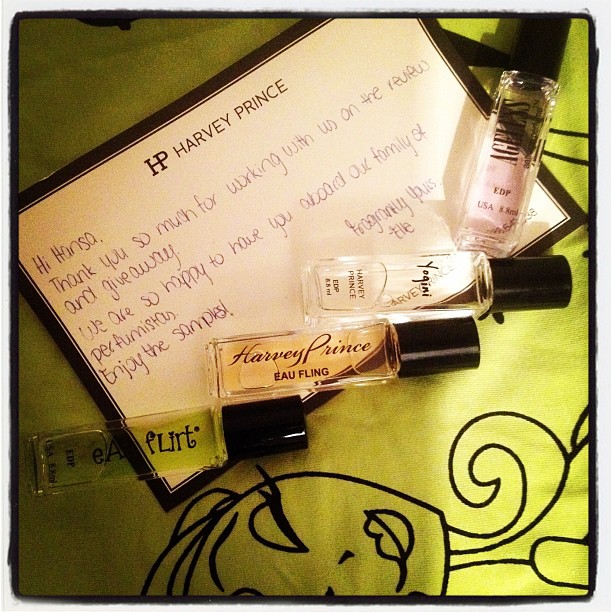 HP HARVEY PRINCE
Hi Hansa,
Thank you so much for working with us on the review
and giveaway.
We are so happy to have you aboard our family of
perfumistas.
Enjoy the samples!
Fragrantly Yours,
EDP
USA 8.8ml
Yogini
HARVEY
PRINCE
EDP
8.8 ml
Harvey Prince
EAU FLING
eAu fLirt
EDP
USA 8.8ml